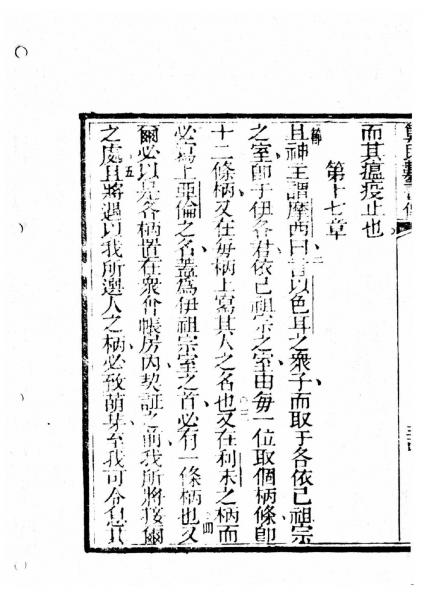 而其瘟疫止也
第十七章
節
且神主謂摩西曰言以色耳之衆子而取于各依己祖宗
二
之室卽于伊各君依己祖宗之室由每一位取個柄條卽
十二條柄又在每柄上寫其人之名也又在利未之柄而
三
必寫上亞倫之名蓋為伊祖宗室之首必有一條柄也又
四
爾必以是各柄置在衆會帳房內契証之前我所將接爾
之處且將遇以我所選人之柄必致萌芽至我可令息其
五